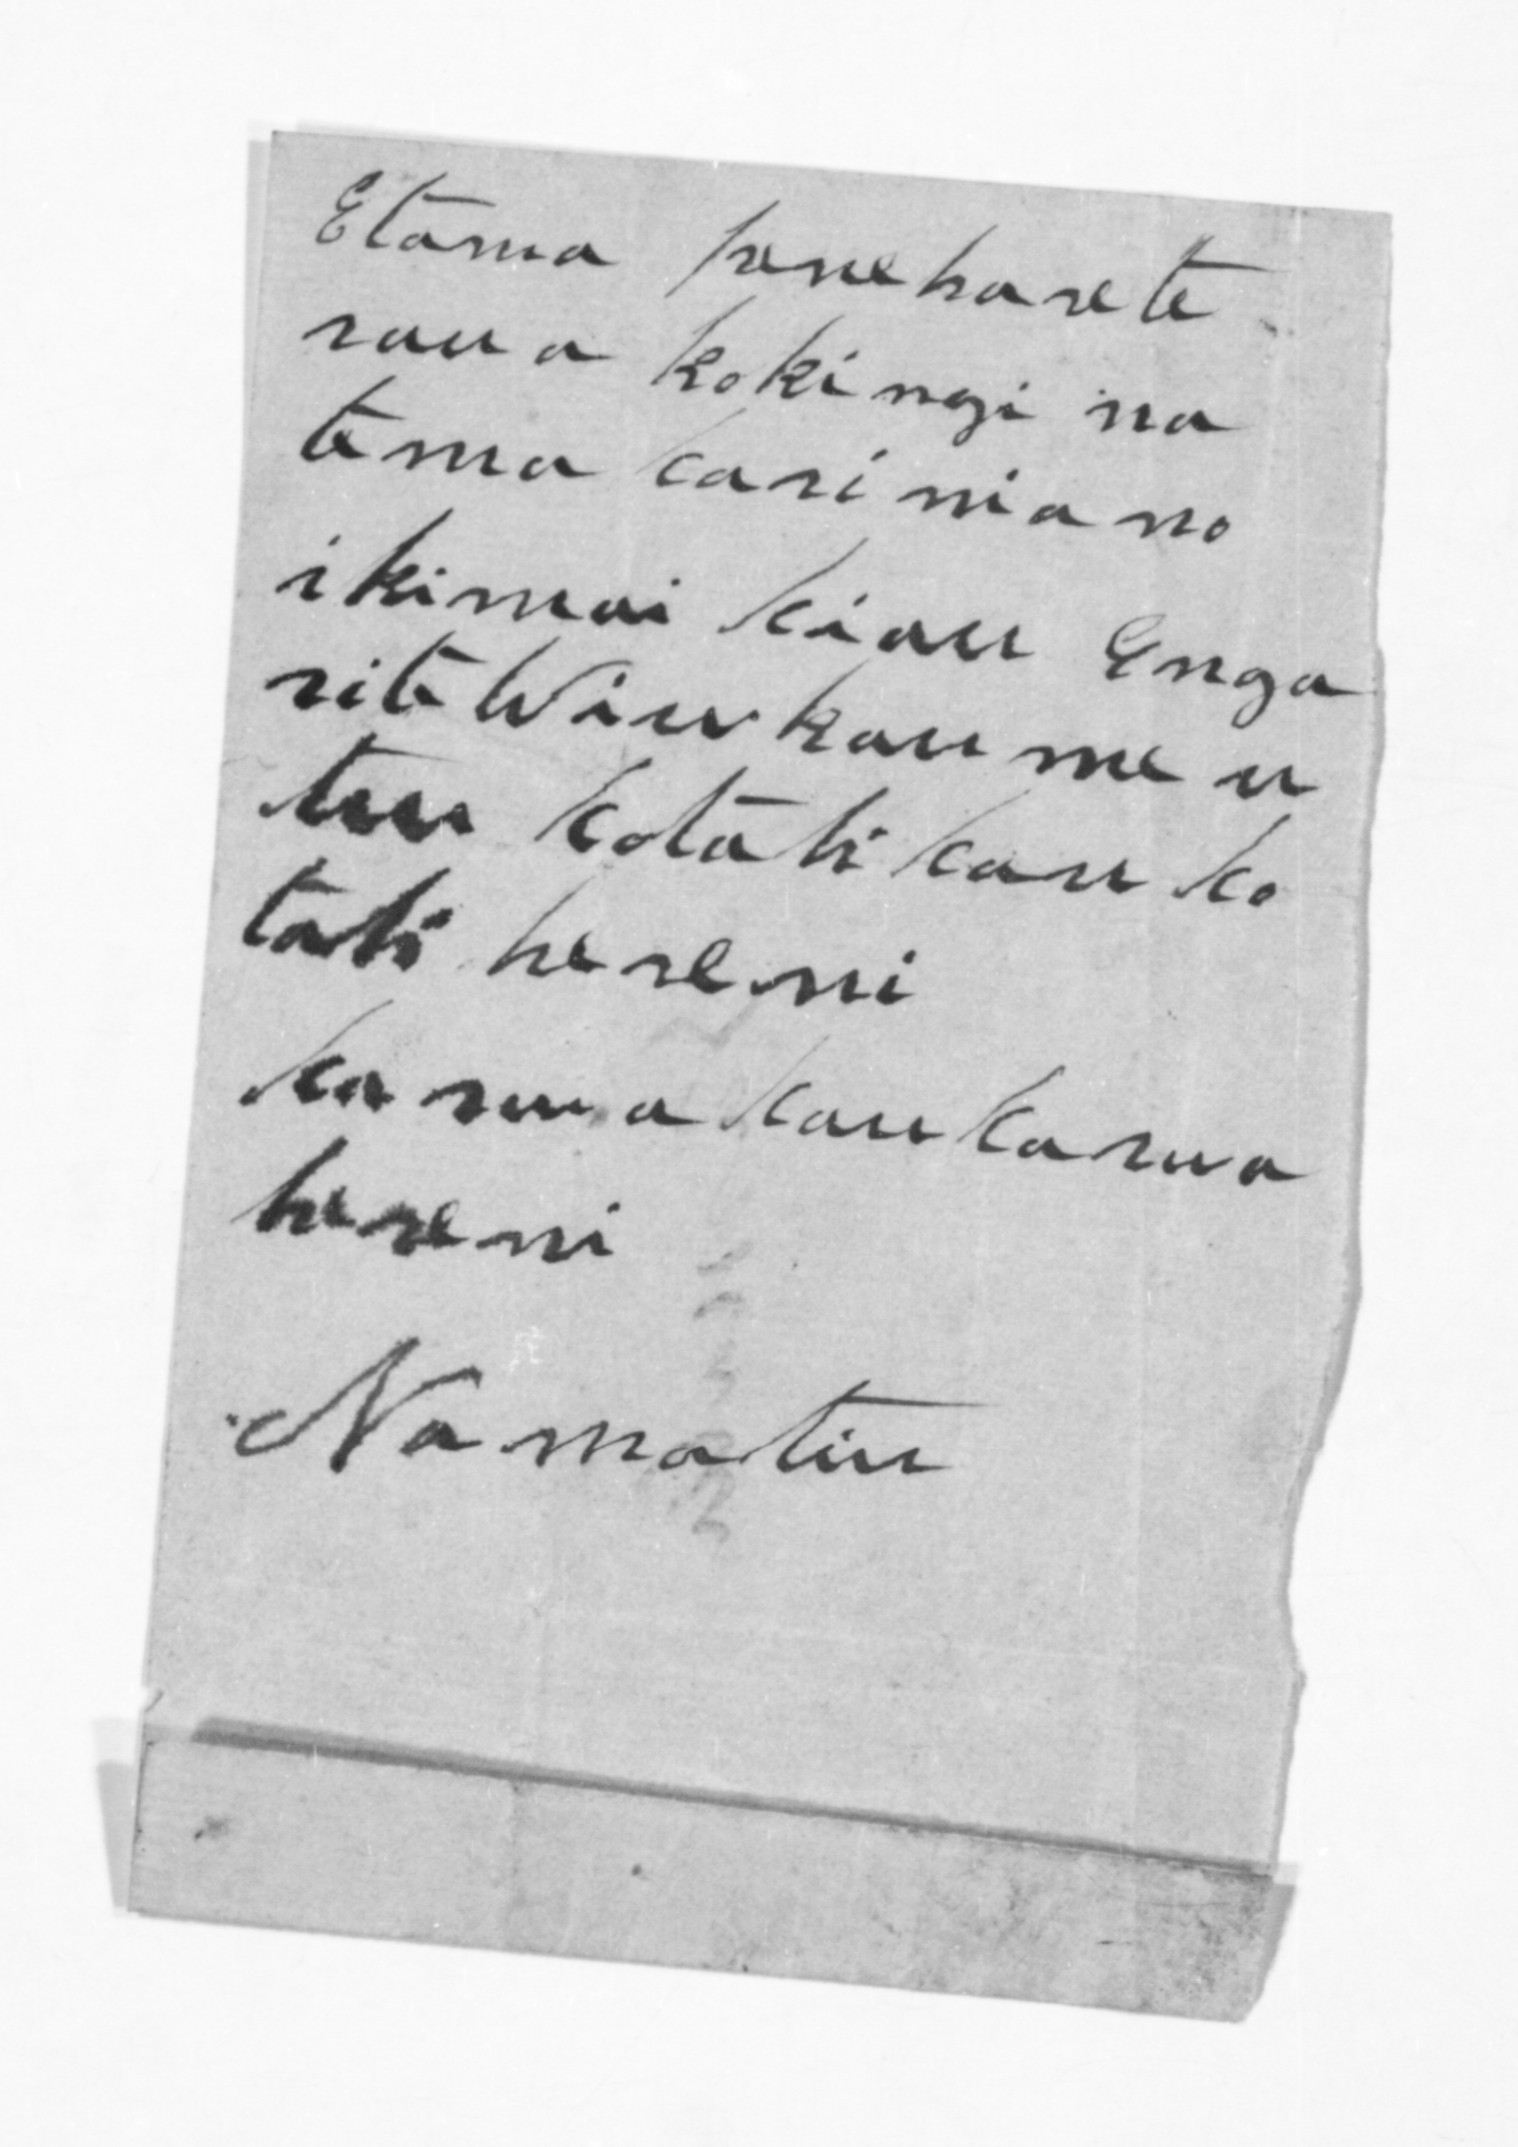 Etama penehareте
raua kokingi na
tema kari niano
i kimai kiau Enga
rite Wiw kau me u
tuu kotahi kau ko
tahi hereni
ka rua kau karua
hereni
Na matiu